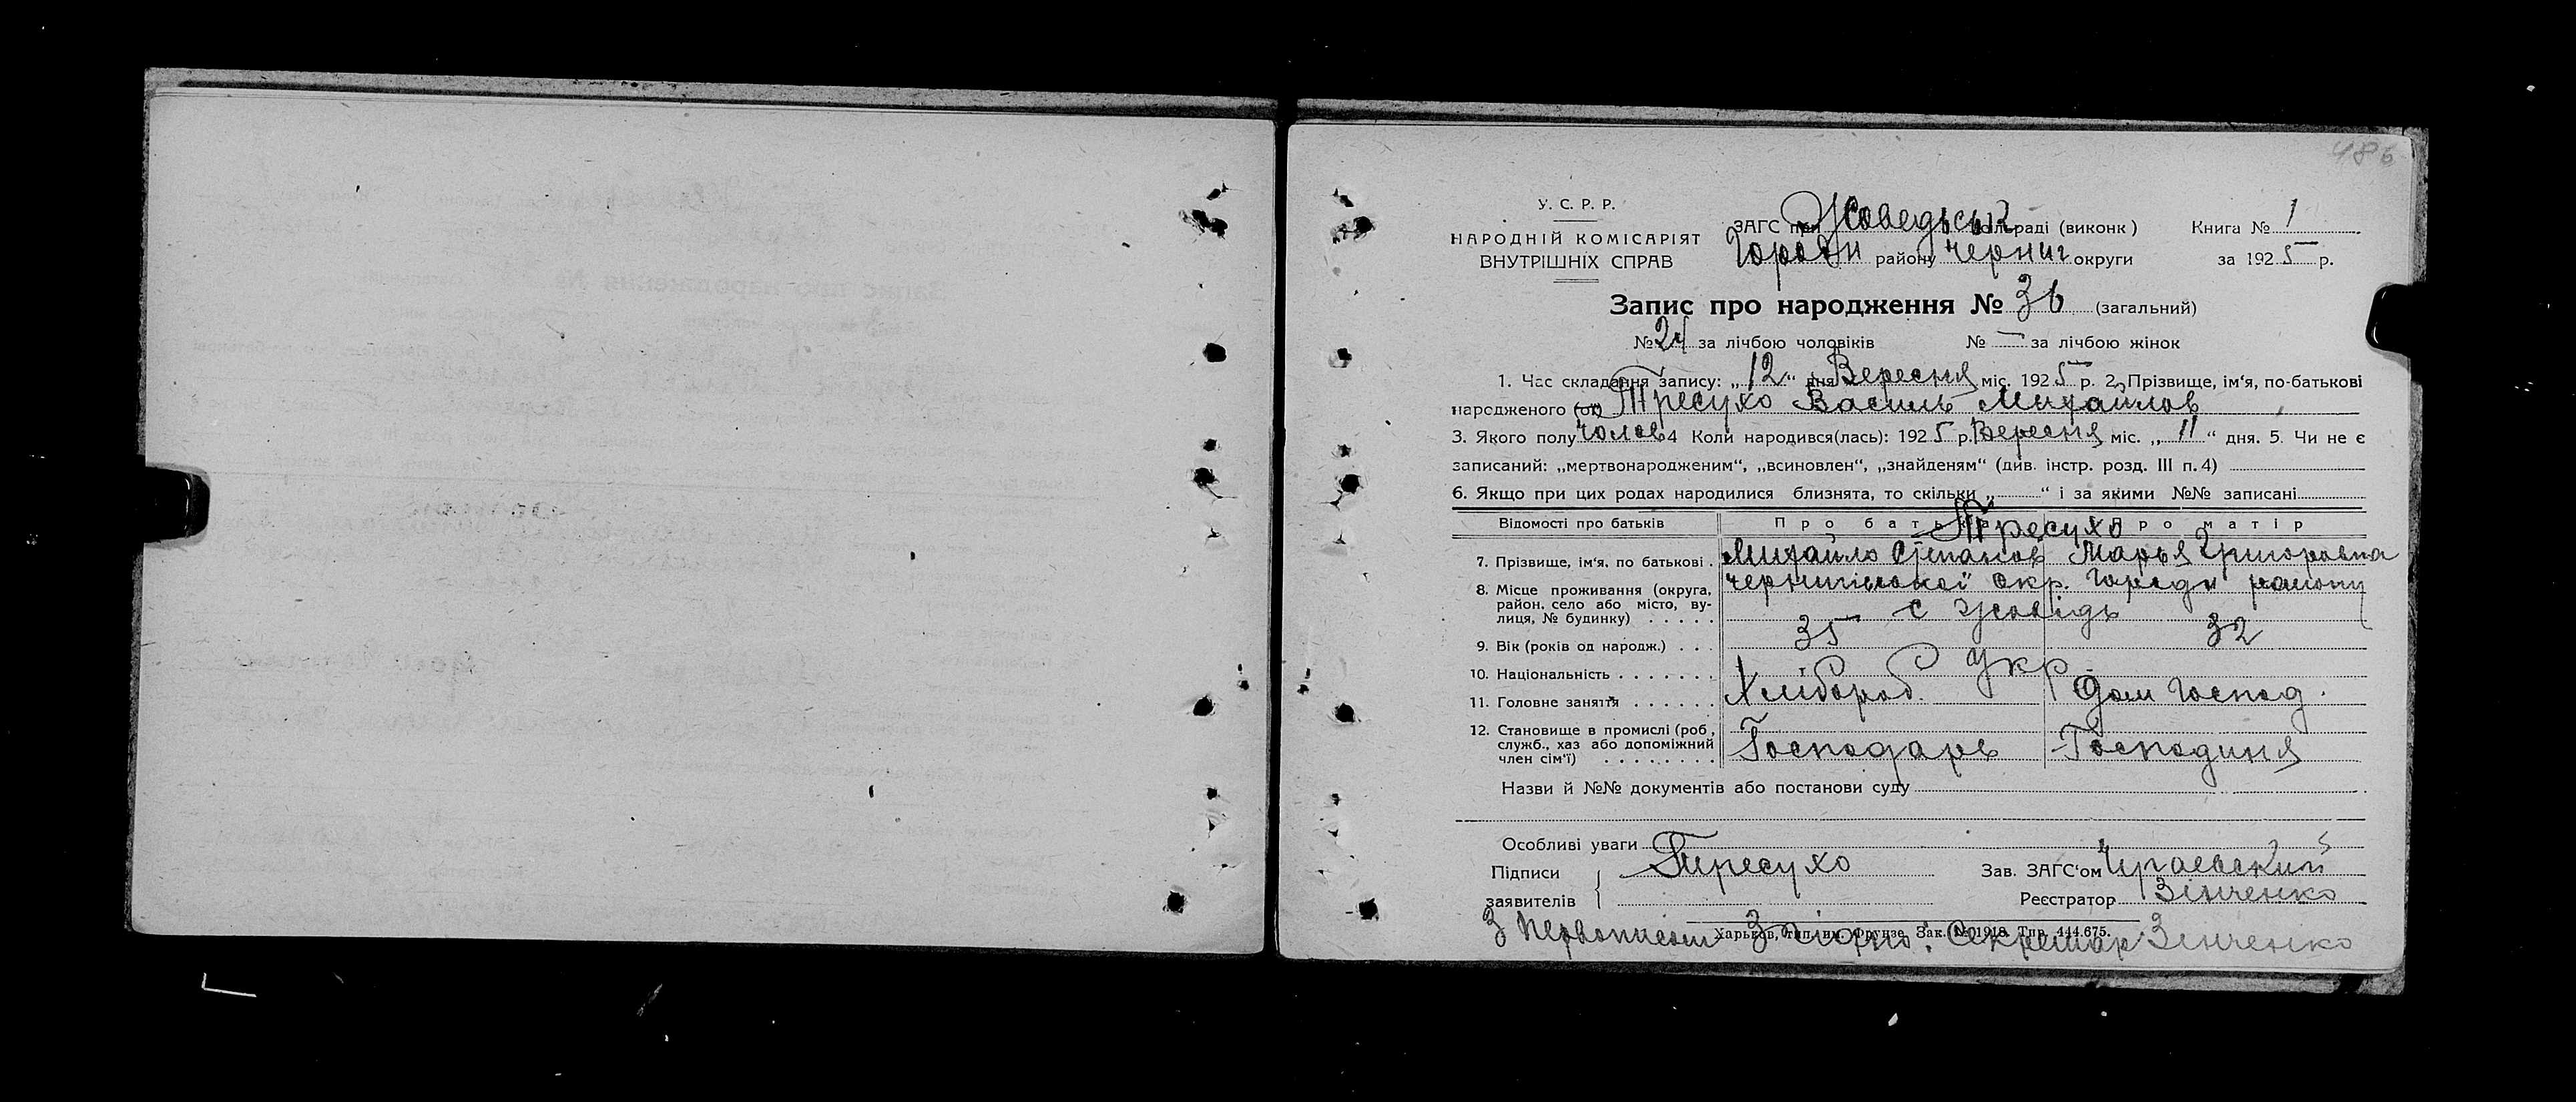 486
У. С. Р. Р.
НАРОДНІЙ КОМІСАРІЯТ
ВНУТРІШНІХ СПРАВ
ЗАГС при Жоведськ сільраді (виконк)
Городн району Черниг округи
Книга № 1
за 1925 р.
Запис про народження № 36 (загальний)
№ 24 за лічбою чоловіків № — за лічбою жінок
1. Час складання запису: „12" дня Вересня міс. 1925 р. 2. Прізвище, ім'я, по-батькові
народженого (ої) Тресухо Василь Михайлов
3. Якого полу Чолов 4 Коли народився(лась): 1925 р. Вересня міс. „11" дня. 5. Чи не є
записаний: „мертвонародженим", „всиновлен", „знайденям" (див. інстр. розд. III п. 4)
6. Якщо при цих родах народилися близнята, то скільки „ " і за якими №№ записані
Відомості про батьків Про батька Про матір
Тресухо
7. Прізвище, ім'я, по батькові. Михайло Степанов Марья Григоровна
8. Місце проживання (округа, район, село або місто, вулиця, № будинку) Чернигівської окр. Городн району
с Жовідь
9. Вік (років од народж.) 35 32
10. Національність Укр
11. Головне заняття Хлібороб. Дом господ.
12. Становище в промислі (роб, служб., хаз або допоміжний член сім'ї) Господарь Господиня
Назви й №№ документів або постанови суду
Особливі уваги
Підписи
заявителів
Тресухо
Зав. ЗАГС'ом
Реєстратор Зінченко
Харьков, тип. им. Фрунзе. Зак. № 1918. Тир. 444.675.
З Первописом Згідно: Секретар Зінченко